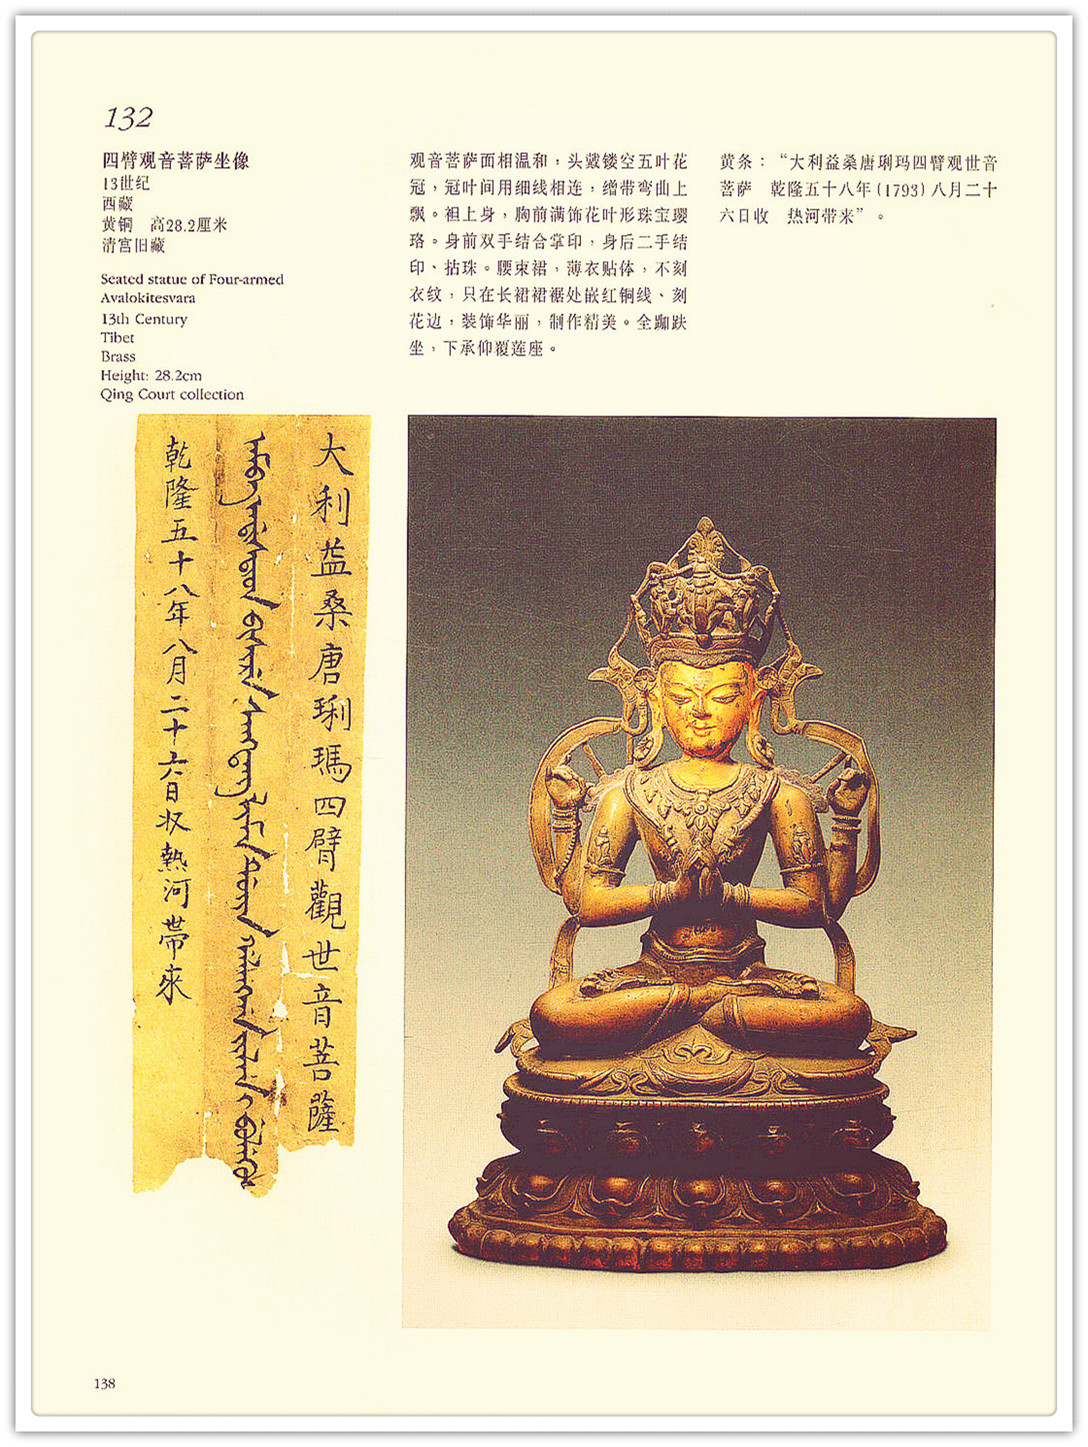 132
四臂观音菩萨坐像
13世纪
西藏
黄铜　高28.2厘米
清宫旧藏
Seated statue of Four-armed
Avalokitesvara
13th Century
Tibet
Brass
Height: 28.2cm
Qing Court collection
观音菩萨面相温和，头戴镂空五叶花
冠，冠叶间用细线相连，缯带弯曲上
飘。袒上身，胸前满饰花叶形珠宝璎
珞。身前双手结合掌印，身后二手结
印、拈珠。腰束裙，薄衣贴体，不刻
衣纹，只在长裙裙裾处嵌红铜线、刻
花边，装饰华丽，制作精美。全跏趺
坐，下承仰覆莲座。
黄条：“大利益桑唐琍玛四臂观世音
菩萨　乾隆五十八年(1793)八月二十
六日收　热河带来”。
大利益桑唐琍瑪四臂觀世音菩薩
乾隆五十八年八月二十六日收熱河帶來
138